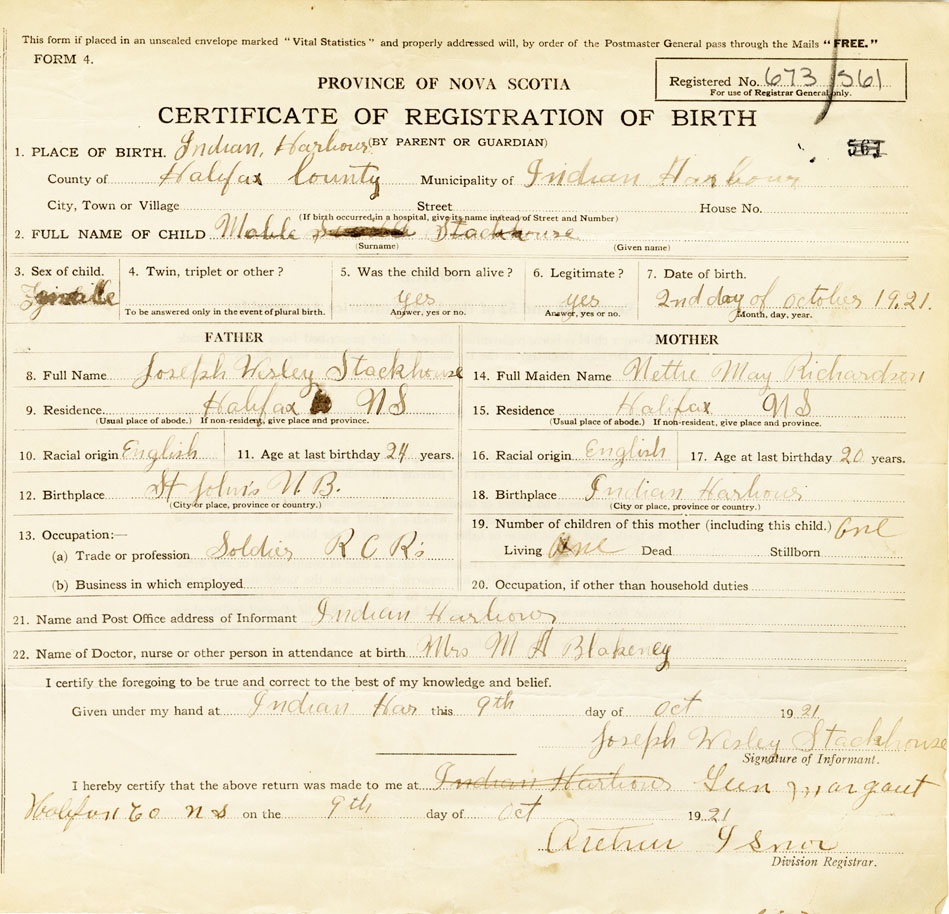 This form if placed in an unsealed envelope marked "Vital Statistics" and properly addressed will, by order of the Postmaster General pass through the Mails "FREE."
FORM 4.
Registered No. 673/561
For use of Registrar General only.
PROVINCE OF NOVA SCOTIA
CERTIFICATE OF REGISTRATION OF BIRTH
(BY PARENT OR GUARDIAN)
561
1. PLACE OF BIRTH. Indian Harbour
County of Halifax County Municipality of Indian Harbour
City, Town or Village Street House No.
(If birth occurred in a hospital, give its name instead of Street and Number)
2. FULL NAME OF CHILD Mable Stackhouse
(Surname) (Given name)
3. Sex of child. 4. Twin, triplet or other? 5. Was the child born alive? 6. Legitimate? 7. Date of birth.
yes yes 2nd day of october 1921.
To be answered only in the event of plural birth. Answer, yes or no. Answer, yes or no. Month, day, year.
FATHER
8. Full Name Joseph Wesley Stackhouse
9. Residence Halifax NS
(Usual place of abode.) If non-resident, give place and province.
10. Racial origin English 11. Age at last birthday 24 years.
12. Birthplace St John's N.B.
(City or place, province or country.)
13. Occupation:—
(a) Trade or profession Soldier R C R's
(b) Business in which employed
MOTHER
14. Full Maiden Name Nettie May Richardson
15. Residence Halifax NS
(Usual place of abode.) If non-resident, give place and province.
16. Racial origin English 17. Age at last birthday 20 years.
18. Birthplace Indian Harbour
(City or place, province or country.)
19. Number of children of this mother (including this child.) One
Living One Dead Stillborn
20. Occupation, if other than household duties
21. Name and Post Office address of Informant Indian Harbour
22. Name of Doctor, nurse or other person in attendance at birth Mrs M A Blakeney
I certify the foregoing to be true and correct to the best of my knowledge and belief.
Given under my hand at Indian Har this 9th day of oct 1921
Joseph Wesley Stackhouse
Signature of Informant.
I hereby certify that the above return was made to me at Indian Harbour Glen Margaut
Halifax Co N S on the 9th day of Oct 1921
Arthur Isnor
Division Registrar.